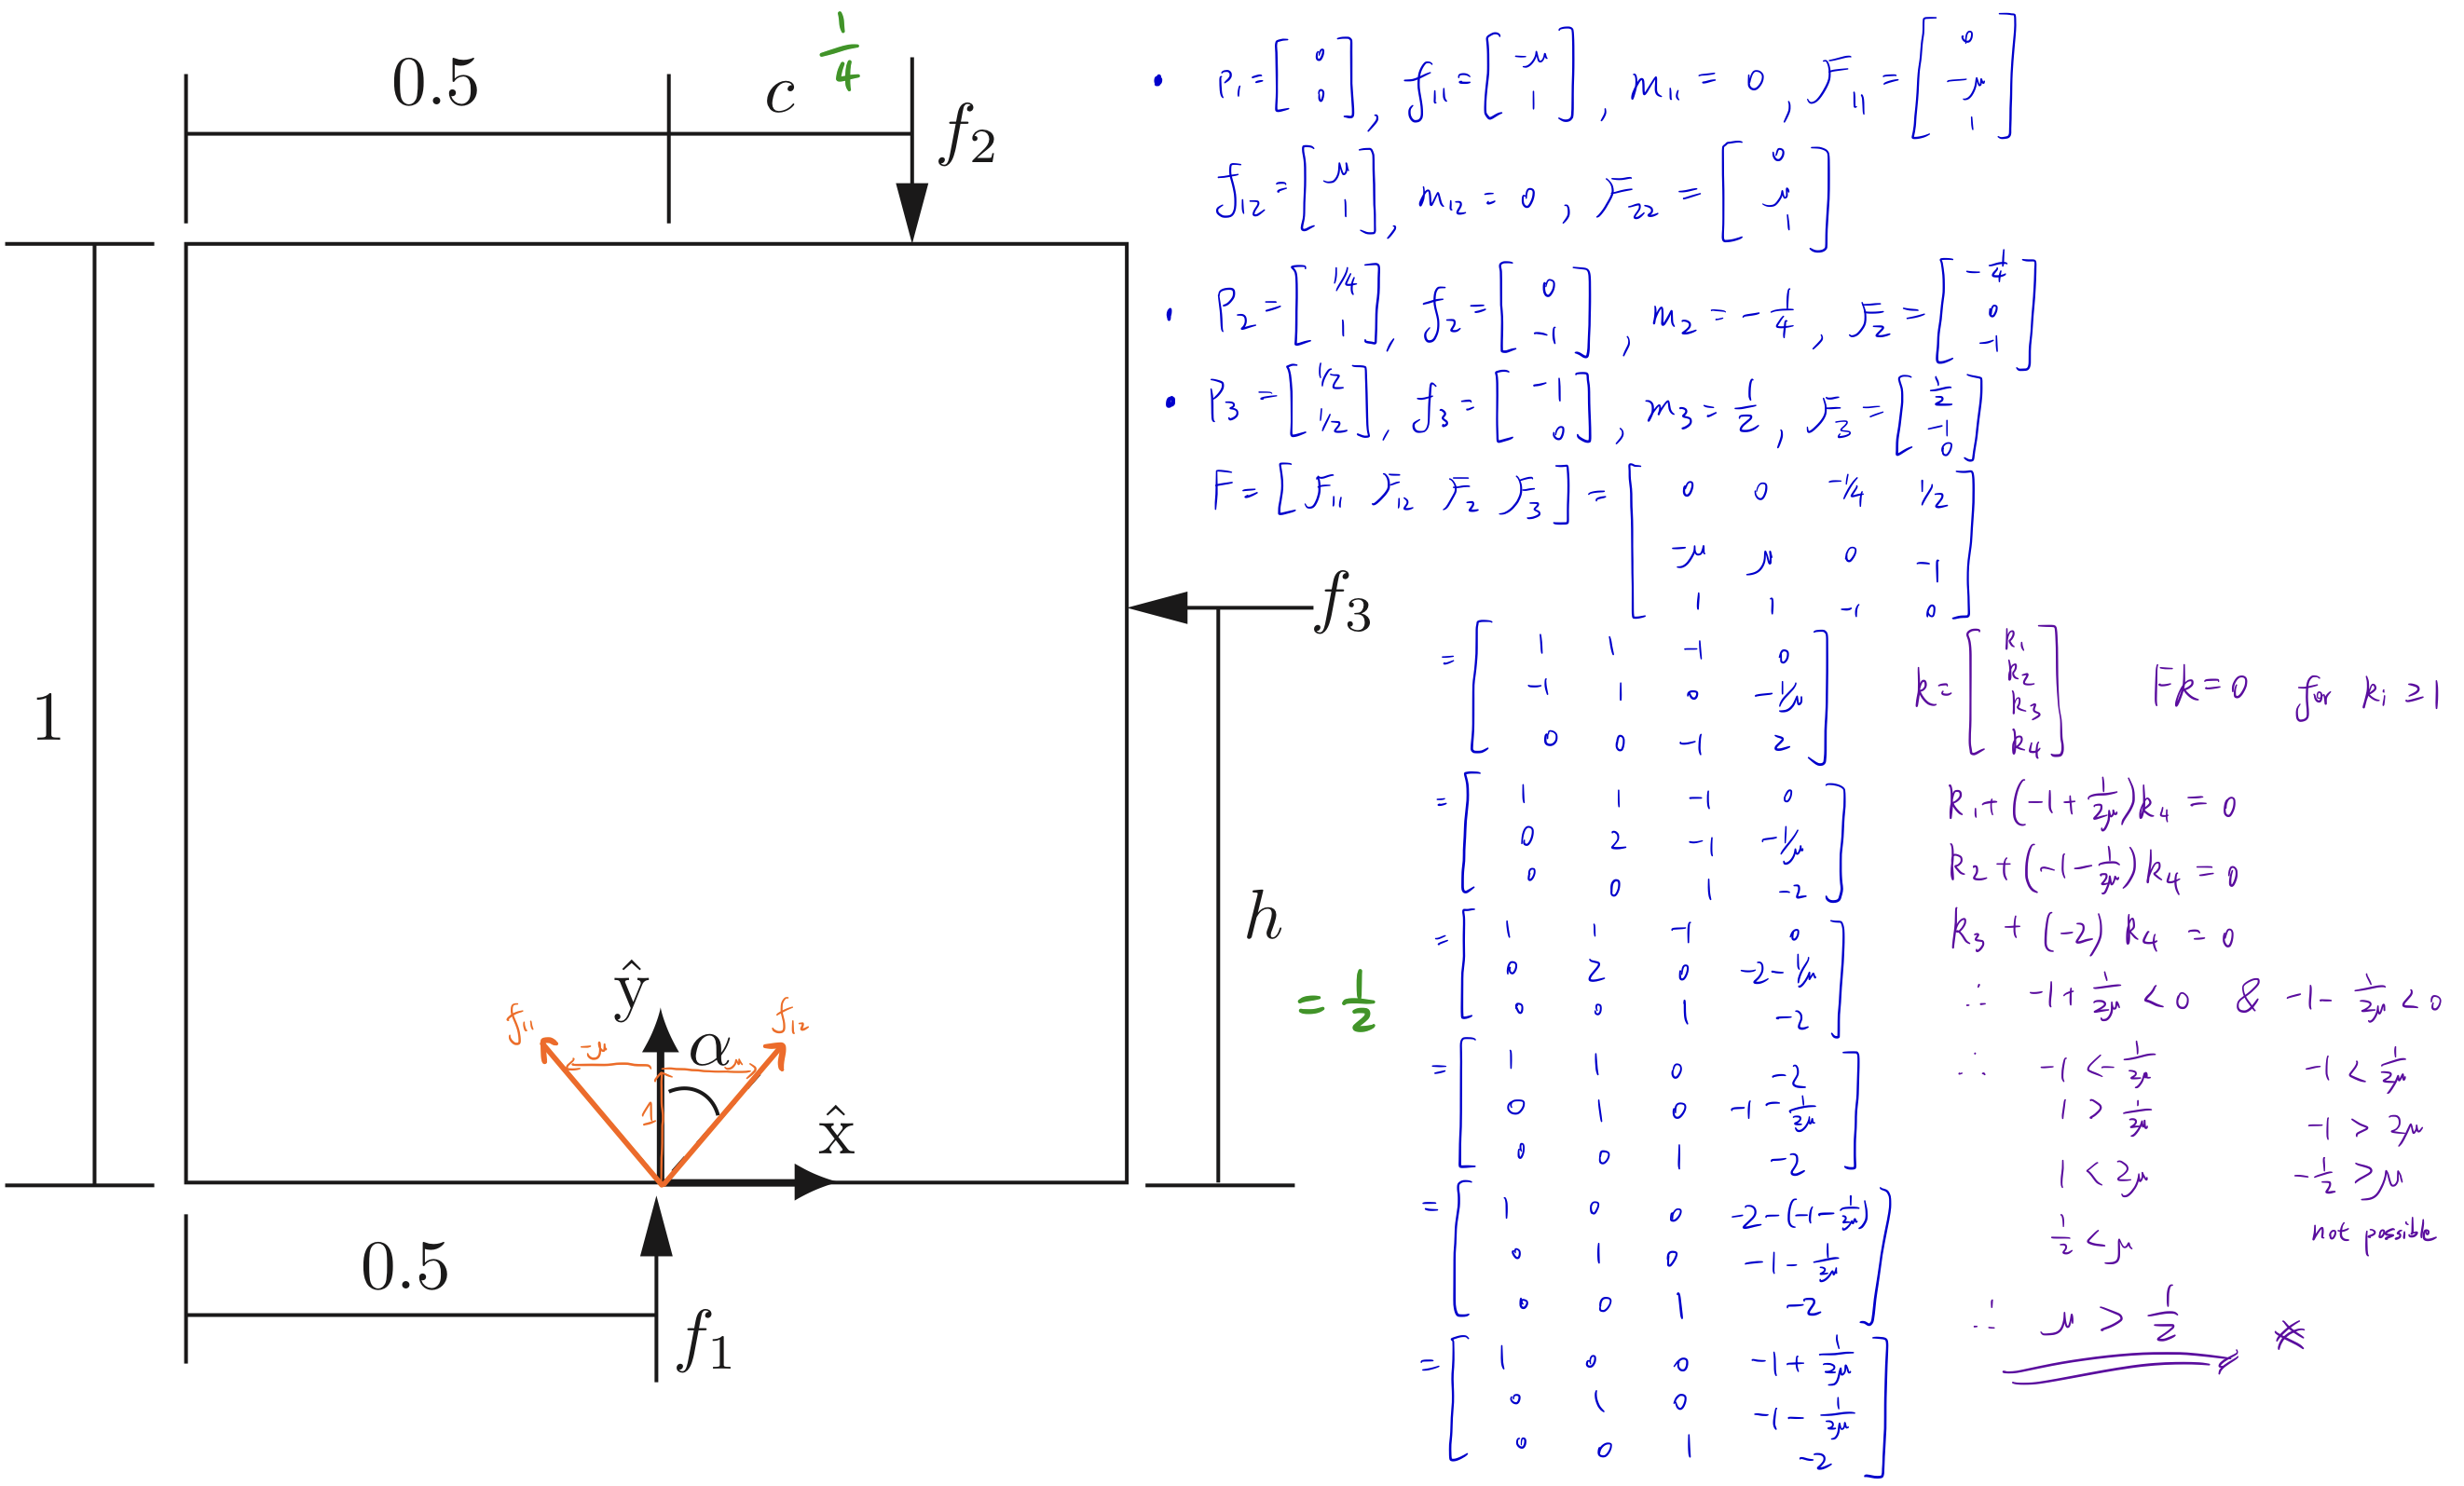 0.5
c
1/4
f₂
1
f₃
h
= 1/2
ŷ
α
x̂
f₁₁
f₁₂
-μ
μ
1
0.5
f₁
• P₁ = [0; 0], f₁₁ = [-μ; 1], m₁₁ = 0, F₁₁ = [0; -μ; 1]
f₁₂ = [μ; 1], m₁₂ = 0, F₂₂ = [0; μ; 1]
• P₂ = [1/4; 1], f₂ = [0; -1], m₂ = -1/4, F₂ = [-1/4; 0; -1]
• P₃ = [1/2; 1/2], f₃ = [-1; 0], m₃ = 1/2, F₃ = [1/2; -1; 0]
F = [F₁₁ F₁₂ F₂ F₃] = [0 0 -1/4 1/2; -μ μ 0 -1; 1 1 -1 0]
= [1 1 -1 0; -1 1 0 -1/μ; 0 0 -1 2]
= [1 1 -1 0; 0 2 -1 -1/μ; 0 0 1 -2]
= [1 1 -1 0; 0 2 0 -2-1/μ; 0 0 1 -2]
= [1 1 0 -2; 0 1 0 -1-1/2μ; 0 0 1 -2]
= [1 0 0 -2-(-1-1/2μ); 0 1 0 -1-1/2μ; 0 0 1 -2]
= [1 0 0 -1+1/2μ; 0 1 0 -1-1/2μ; 0 0 1 -2]
k = [k₁; k₂; k₃; k₄] Fk = 0 for kᵢ ≥ 1
k₁ + (-1 + 1/2μ)k₄ = 0
k₂ + (-1 - 1/2μ)k₄ = 0
k₃ + (-2) k₄ = 0
∴ -1 + 1/2μ < 0 & -1 - 1/2μ < 0
∴ -1 < -1/2μ -1 < 1/2μ
1 > 1/2μ -1 > 2μ
1 < 2μ -1/2 > μ
1/2 < μ not possible
∴ μ > 1/2